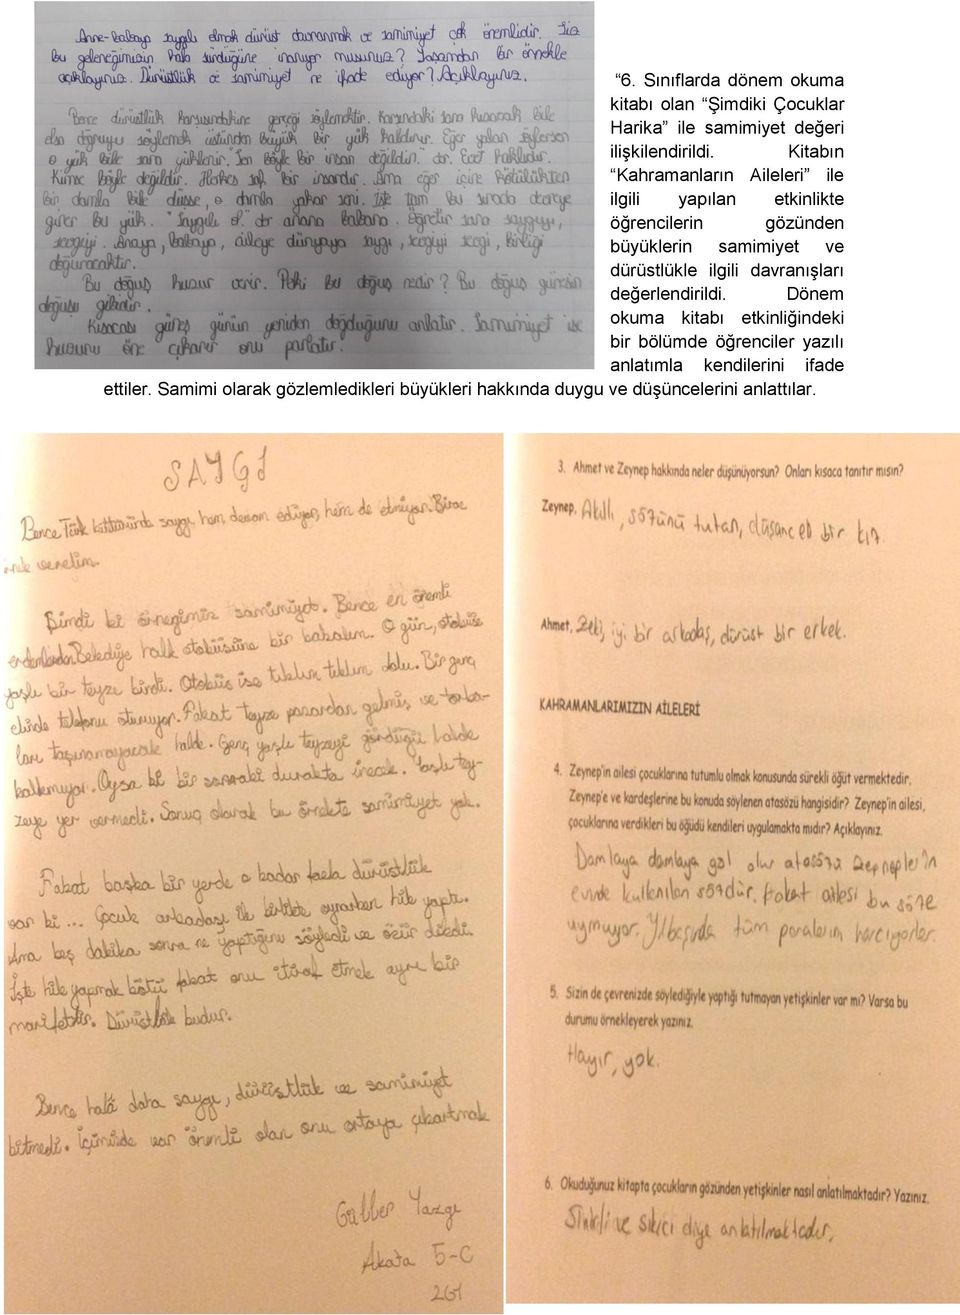 Anne-babaya saygılı olmak dürüst davranmak ve samimiyet çok önemlidir. Siz
bu geleneğimizin hala sürdüğüne inanıyor musunuz? Yaşamdan bir örnekle
açıklayınız. Dürüstlük ve samimiyet ne ifade ediyor? Açıklayınız.
Bence dürüstlük karşısındakine gerçeği söylemektir. Karşındaki sana kızacak bile
olsa doğruyu söylemek üstünden büyük bir yük kaldırır. Eğer yalan söylersen
o yük bile sana yüklenir. "Sen böyle bir insan değildin." der. Evet haklıdır.
Kimse böyle değildir. Herkes saf bir insandır. Ama eğer içine kötülükten
bir damla bile düşse, o damla yakar seni. İşte tam bu sırada devreye
girer bu yük. "Saygılı ol" der anana babana. Öğretir sana saygıyı,
sevgiyi. Anaya, babaya, aileye dünyaya saygı, sevgiyi sevgi, birliği
doğuracaktır.
Bu doğuş huzur verir. Peki bu doğuş nedir? Bu doğuş güneşin
doğuşu gibidir.
Kısacası güneş günün yeniden doğduğunu anlatır. Samimiyet ise
huzuru öne çıkarır onu parlatır.
“6. Sınıflarda dönem okuma
kitabı olan “Şimdiki Çocuklar
Harika” ile samimiyet değeri
ilişkilendirildi. Kitabın
“Kahramanların Aileleri” ile
ilgili yapılan etkinlikte
öğrencilerin gözünden
büyüklerin samimiyet ve
dürüstlükle ilgili davranışları
değerlendirildi. Dönem
okuma kitabı etkinliğindeki
bir bölümde öğrenciler yazılı
anlatımla kendilerini ifade
ettiler. Samimi olarak gözlemledikleri büyükleri hakkında duygu ve düşüncelerini anlattılar.
SAYGI
Bence Türk kültüründe saygı hem devam ediyor, hem de etmiyor. Biraz
örnek verelim.
Şimdi ki örneğimiz samimiyet. Bence en önemli
erdemlerden. Belediye halk otobüsüne bir bakalım. O gün, otobüse
yaşlı bir teyze bindi. Otobüs ise tıklım tıklım dolu. Bir genç
elinde telefonu oturuyor. Fakat teyze pazardan gelmiş ve torba-
ları taşınamayacak halde. Genç yaşlı teyzeyi gördüğü halde
kalkmıyor. Oysa ki bir sonraki durakta inecek. Yaşlı tey-
zeye yer vermedi. Sonuç olarak bu örnekte samimiyet yok.
Fakat başka bir yerde o kadar fazla dürüstlük
var ki... Çocuk arkadaşı ile birlikte oynarken hile yaptı.
Ama beş dakika sonra ne yaptığını söyledi ve özür diledi.
İşte hile yapmak kötü fakat onu itiraf etmek ayrı bir
marifettir. Dürüstlük budur.
Bence halâ daha saygı, dürüstlük ve samimiyet
bitmedi. İçimizde var önemli olan onu ortaya çıkartmak
Akata 5-C
261
3. Ahmet ve Zeynep hakkında neler düşünüyorsun? Onları kısaca tanıtır mısın?
Zeynep, Akıllı, sözünü tutan, düşünceli bir kız.
Ahmet, Zeki, iyi bir arkadaş, dürüst bir erkek.
KAHRAMANLARIMIZIN AİLELERİ
4. Zeynep'in ailesi çocuklarına tutumlu olmak konusunda sürekli öğüt vermektedir.
Zeynep'e ve kardeşlerine bu konuda söylenen atasözü hangisidir? Zeynep'in ailesi,
çocuklarına verdikleri bu öğüdü kendileri uygulamakta mıdır? Açıklayınız.
Damlaya damlaya göl olur atasözü Zeynepler'in
evinde kullanılan sözdür. Fakat ailesi bu söze
uymuyor. Yılbaşında tüm paralarını harcıyorlar.
5. Sizin de çevrenizde söylediğiyle yaptığı tutmayan yetişkinler var mı? Varsa bu
durumu örnekleyerek yazınız.
Hayır, yok.
6. Okuduğunuz kitapta çocukların gözünden yetişkinler nasıl anlatılmaktadır? Yazınız.
Sinirli ve sıkıcı diye anlatılmaktadır.